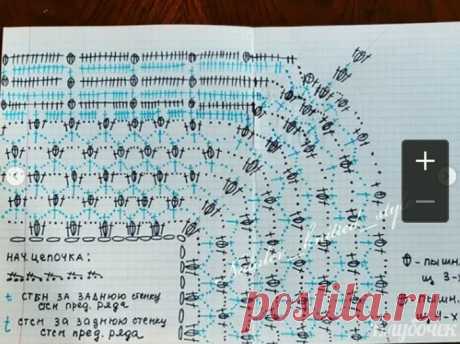 НАЧ. ЦЕПОЧКА:
СТБН ЗА ЗАДНЮЮ СТЕНКУ
СТСН ПРЕД. РЯДА
СТСН ЗА ЗАДНЮЮ СТЕНКУ
СТСН ПРЕД. РЯДА
- ПЫШН.
ИЗ 3-Х
- ПЫШН.
4-Х
Клубочек
Postila.ru